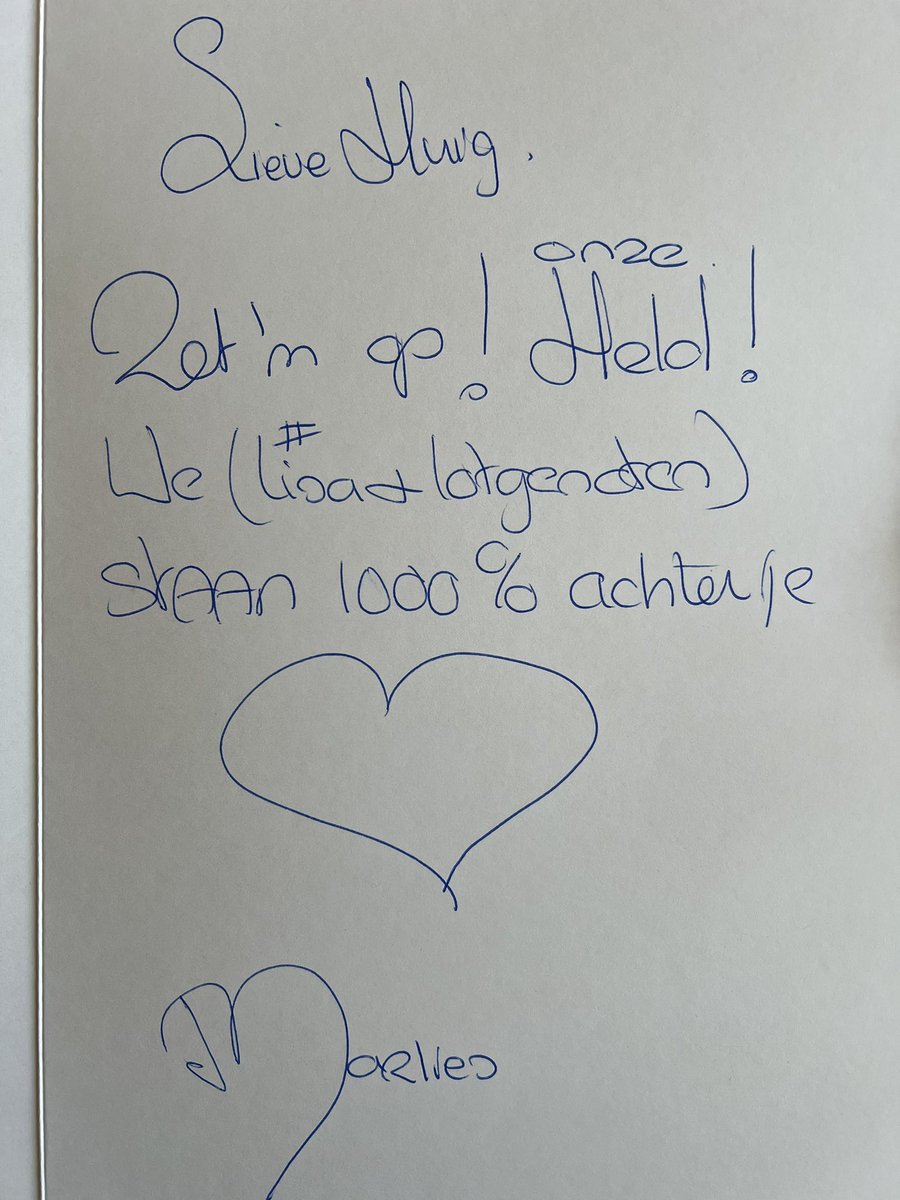 Lieve Huig.
Zet'm op! onze Held!
We (#lisa+lotgenoten)
staan 1000% achter je
Marlies